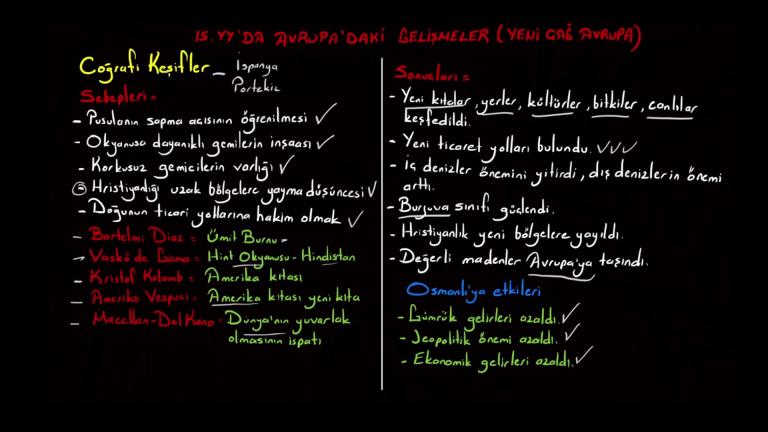 15. YY'DA AVRUPA'DAKİ GELİŞMELER (YENİ ÇAĞ AVRUPA)
Coğrafi Keşifler - İspanya
Portekiz
Sebepleri -
- Pusulanın sapma açısının öğrenilmesi ✓
- Okyanusa dayanıklı gemilerin inşaası ✓
- Korkusuz gemicilerin varlığı ✓
Hristiyanlığı uzak bölgelere yayma düşüncesi ✓
- Doğunun ticari yollarına hakim olmak ✓
- Bartelmi Diaz = Ümit Burnu -
- Vasko de Gama = Hint Okyanusu - Hindistan
- Kristof Kolomb = Amerika kıtası
- Ameriko Vespuci = Amerika kıtası yeni kıta
- Macellan - Del Kano = Dünya'nın yuvarlak
olmasının ispatı
Sonuçları =
- Yeni kıtalar, yerler, kültürler, bitkiler, canlılar
keşfedildi.
- Yeni ticaret yolları bulundu. ✓✓✓
- İç denizler önemini yitirdi, dış denizlerin önemi
arttı.
- Burjuva sınıfı güçlendi.
- Hristiyanlık yeni bölgelere yayıldı.
- Değerli madenler Avrupa'ya taşındı.
Osmanlı'ya etkileri
- Gümrük gelirleri azaldı. ✓
- Jeopolitik önemi azaldı. ✓
- Ekonomik gelirleri azaldı. ✓